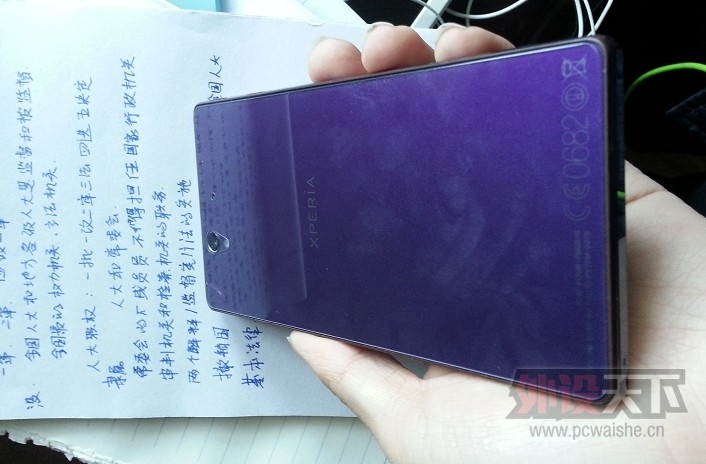 全国人大和地方各级人大是监督和被监督.
全国最高权力机关、立法机关.
人大职权：一批一次二审三法四选五决定
隶属 人大和常委会
常委会的成员不得担任国家行政机关
审判机关和检察机关的职务
两个解释/监督宪法的实施
撤销国
全国人大
基本法律
XPERIA
CE0682
外设天下
www.pcwaishe.cn